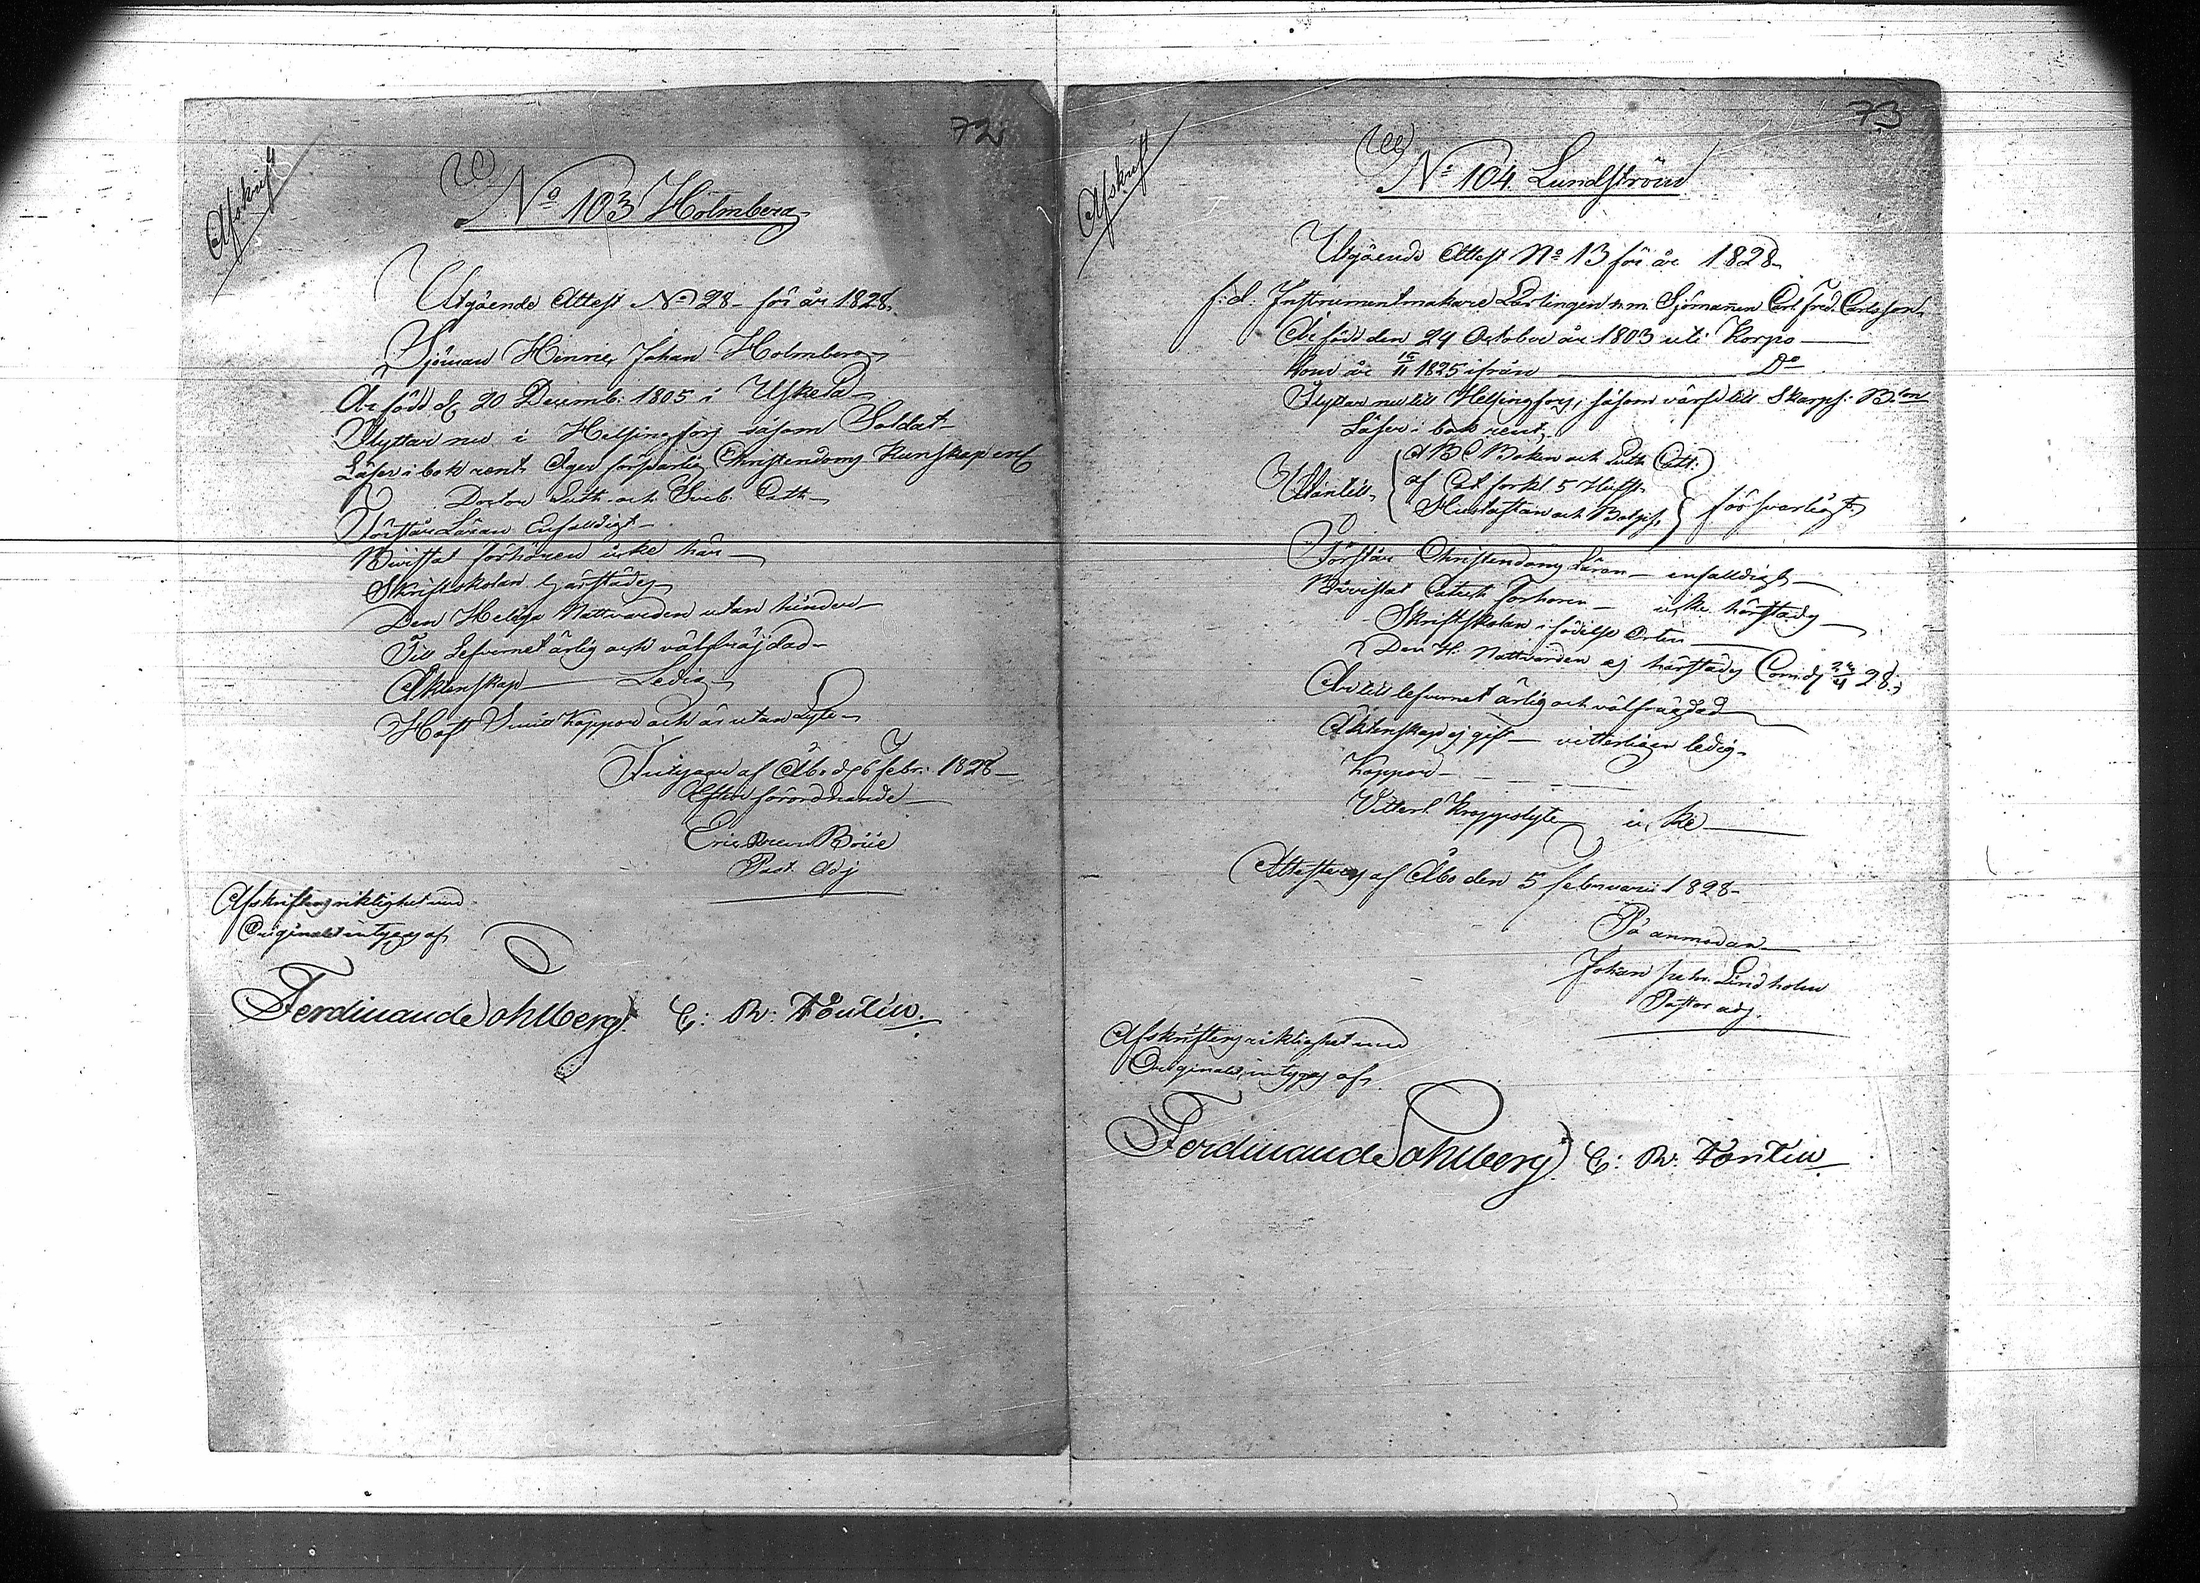 72
Afskrift
No 103 Holmberg
Utgående Attest No 28 för år 1828.
Sjöman Henric Johan Holmberg
Är född d. 20 Decemb: 1805 i Uskela
Flyttar nu i Helsingfors såsom Soldat
Läser i bok rent Äger försvarlig Christendoms Kunskap enl
Doctor Luth. och Sveb. Cath.
Förstår Läran Enfalldigt
Bevistat förhören icke här
Skriftskolan härstädes
Den Heliga Nattvarden utan hinder
Till Lefvernet ärlig och välfräjdad
Äktenskap Ledig
Haft Små Koppor och är utan Lyte
Intygar af Åbo d. 6 febr. 1828
Efter förordnande
Eric
Past. Adj
Afskriftens riktighet med
Originalet intygas af,
Ferdinand Sohlberg. C: R: Fontin.
73
Afskrift
No 104 Lundström
Utgående Attest No 13 för år 1828.
f: d: Instrumentmakare Lärlingen n.m. Sjömannen Carl Fred. Carlsson
Är född den 24 October år 1803 uti Korpo
kom år 1825 ifrån Do
Flyttar nu till Helsingfors, såsom värfd till Skarps: B:ton
Läser i bok rent,
Utantill, { A B C Boken och Luth. Cath:
af Cat. förkl. 5 Huft. } försvarligt
Hustaflan och Botps.
Förstår Christendoms Läran enfalldigt
Bevistat Catech. Förhören icke härstädes
Skriftskolan i födelse Orten
Den H. Nattvarden ej härstädes
Är till lefvernet ärlig och välfräjdad
Äktenskap ej gift vitterligen ledig
Koppor
Vitterl. Kroppslyte icke
Attesteras af Åbo den 5 Februarii 1828
På anmodan
Johan Lindholm
Pastor adj.
Afskriftens riktighet med
Originalet intygas af,
Ferdinand Sohlberg. C: R: Fontin.